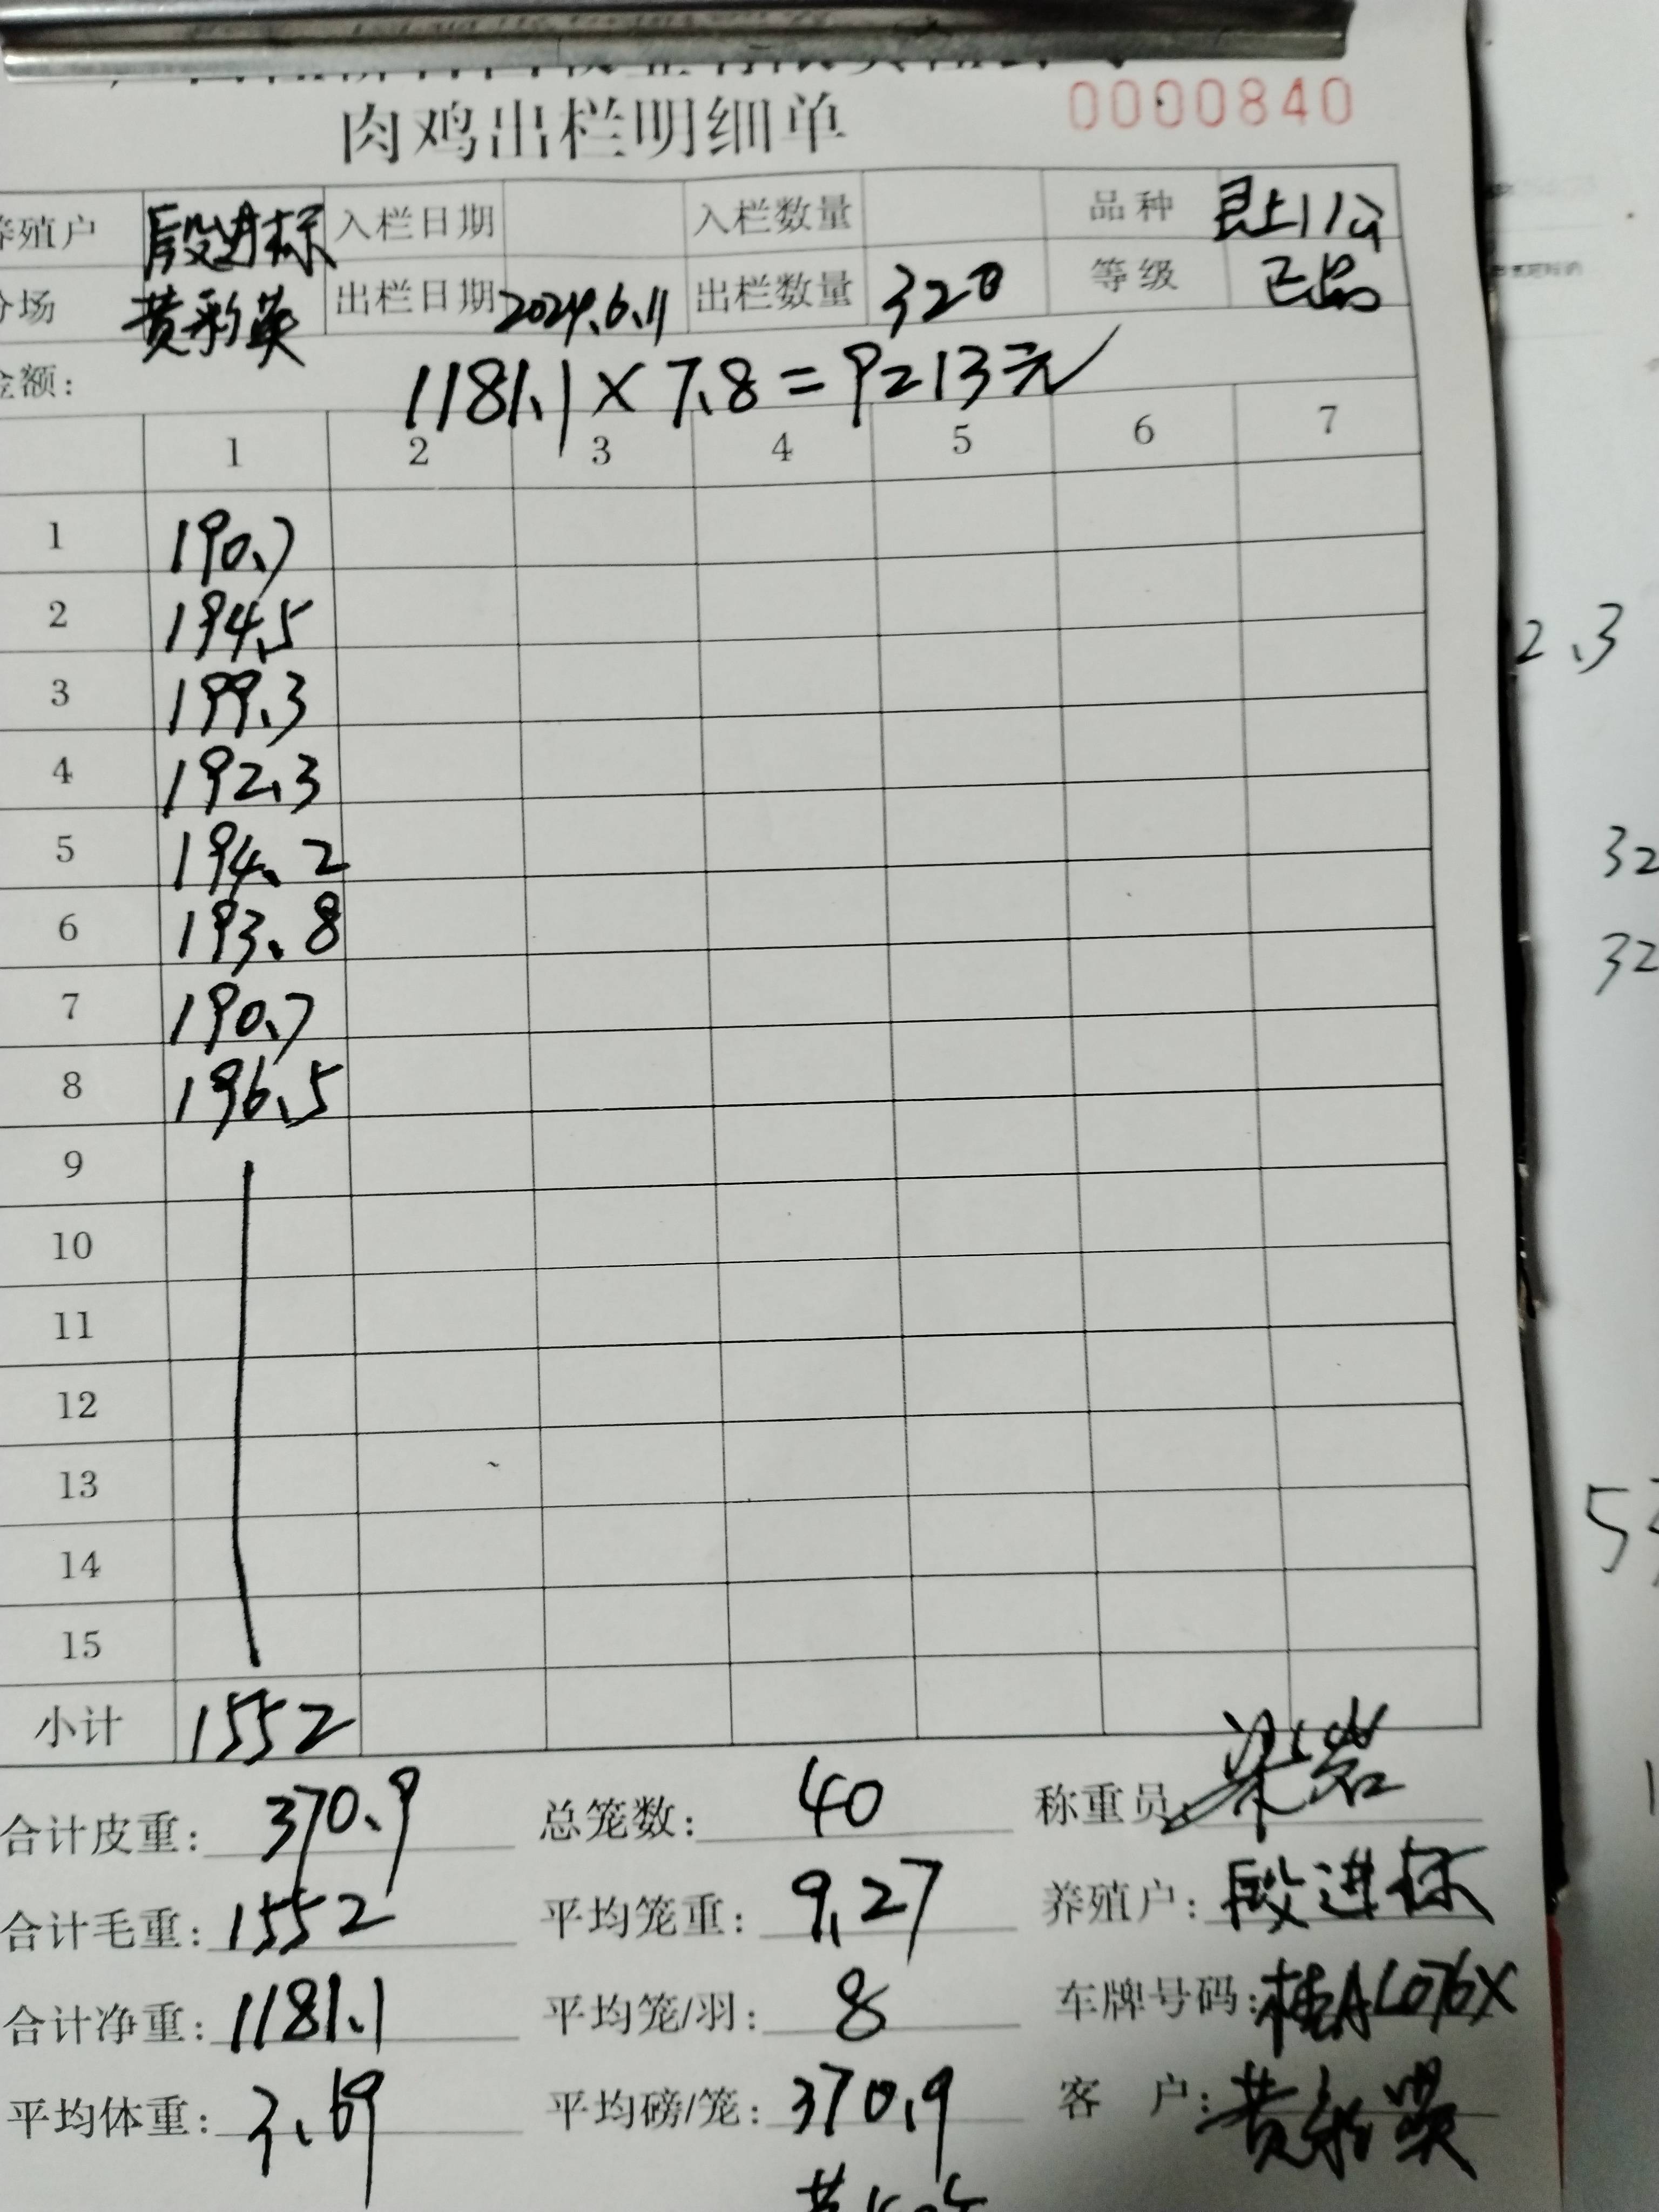 肉鸡出栏明细单 0000840
养殖户 段进标 入栏日期 入栏数量 品种 良上11公
分场 黄彩英 出栏日期 2024.6.11 出栏数量 320 等级 正品
金额: 1181.1×7.8=9213元
1 2 3 4 5 6 7
1 190.7
2 194.5
3 199.3
4 192.3
5 194.2
6 193.8
7 190.7
8 196.5
9
10
11
12
13
14
15
小计 1552
合计皮重: 370.9 总笼数: 40 称重员: 梁岩
合计毛重: 1552 平均笼重: 9.27 养殖户: 段进标
合计净重: 1181.1 平均笼/羽: 8 车牌号码: 桂AL076X
平均体重: 3.69 平均磅/笼: 370.9 客户: 黄彩英
2.3
32
32